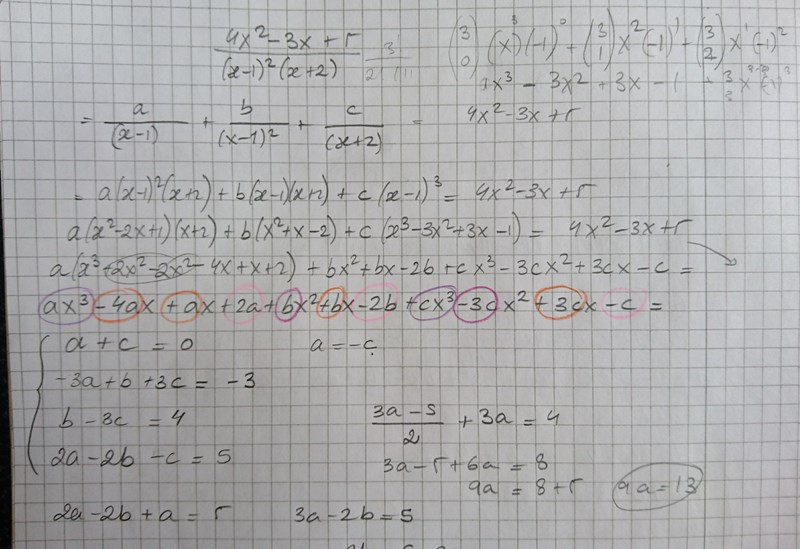 (4x² − 3x + 5) / ((x−1)²(x+2))
(3 0)(x)³(−1)⁰ + (3 1)x²(−1)¹ + (3 2)x¹(−1)²
1x³ − 3x² + 3x − 1
= a/(x−1) + b/(x−1)² + c/(x+2) = 4x² − 3x + 5
= a(x−1)²(x+2) + b(x−1)(x+2) + c(x−1)³ = 4x² − 3x + 5
a(x²−2x+1)(x+2) + b(x²+x−2) + c(x³−3x²+3x−1) = 4x² − 3x + 5
a(x³+2x²−2x²−4x+x+2) + bx²+bx−2b + cx³−3cx²+3cx−c =
ax³ − 4ax + ax + 2a + bx² + bx − 2b + cx³ − 3cx² + 3cx − c =
a + c = 0 a = −c
−3a + b + 3c = −3
b − 3c = 4 (3a − 5)/2 + 3a = 4
2a − 2b − c = 5 3a − 5 + 6a = 8
9a = 8 + 5 9a = 13
2a − 2b + a = 5 3a − 2b = 5